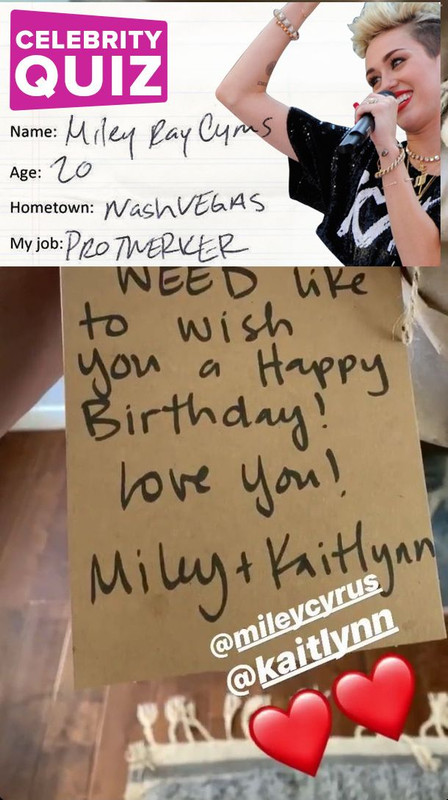 CELEBRITY
QUIZ
Name: Miley Ray Cyrus
Age: 20
Hometown: NashVEGAS
My job: PRO TWERKER
WEED like
to wish
you a Happy
Birthday!
love you!
Miley + Kaitlynn
@mileycyrus
@kaitlynn